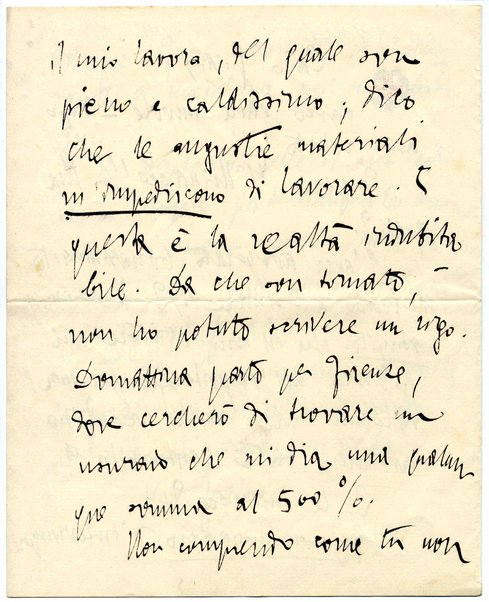 il mio lavoro, del quale son
pieno e caldissimo; dico
che le angustie materiali
m'impediscono di lavorare. E
questa è la realtà indubita
bile. Da che son tornato, –
non ho potuto scrivere un rigo.
Domattina parto per Firenze,
dove cercherò di trovare un
usuraio che mi dia una qualun
que somma al 500 %.
Non comprendo come tu non